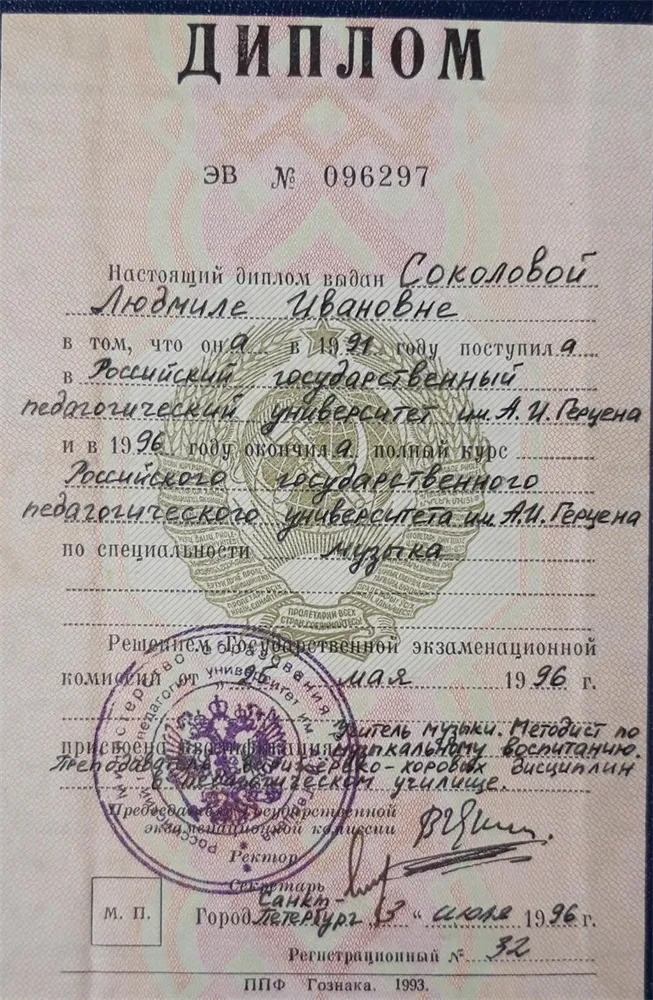 ДИПЛОМ
ЭВ № 096297
Настоящий диплом выдан Соколовой
Людмиле Ивановне
в том, что она в 1991 году поступила
в Российский государственный
педагогический университет им. А. И. Герцена
и в 1996 году окончила полный курс
Российского государственного
педагогического университета им. А.И. Герцена
по специальности музыка
ПРОЛЕТАРИИ ВСЕХ
СТРАН, СОЕДИНЯЙТЕСЬ!
Решением Государственной экзаменационной
комиссии от 25 мая 1996 г.
Учитель музыки. Методист по
присвоена квалификация музыкальному воспитанию.
Преподаватель дирижерско-хоровых дисциплин
в педагогическом училище.
Председатель Государственной
экзаменационной комиссии
Ректор
Секретарь
Санкт-
М. П. Город Петербург „13 “ июля 1996 г.
Регистрационный № 32
ППФ Гознака. 1993.